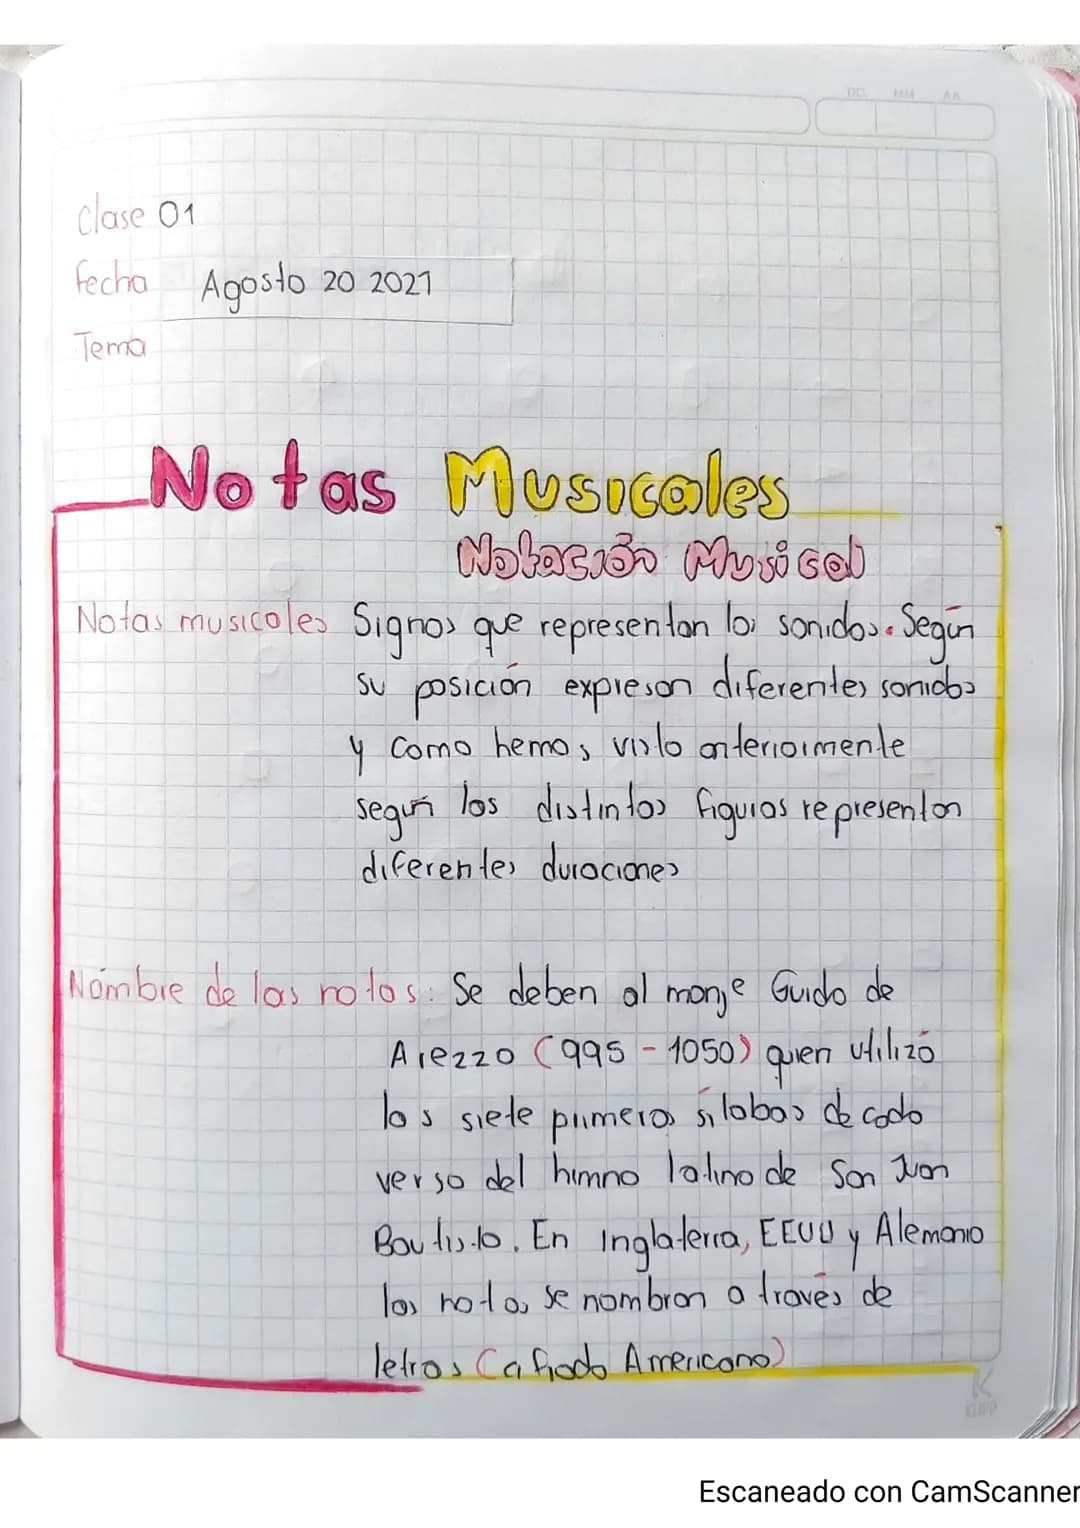 DD MM AA
Clase 01
fecha Agosto 20 2021
Tema
Notas Musicales
Notación Musical
Notas musicales Signos que representan los sonidos. Según
su posición expresan diferentes sonidos
y como hemos visto anteriormente
según las distintas figuras representan
diferentes duraciones
Nombre de las notas: Se deben al monje Guido de
Arezzo (995 - 1050) quien utilizó
los siete primeras sílabas de cada
verso del himno latino de San Juan
Bautista. En Inglaterra, EEUU y Alemania
las notas se nombran a través de
letras (cifrado Americano)
K
KLIPP
Escaneado con CamScanner